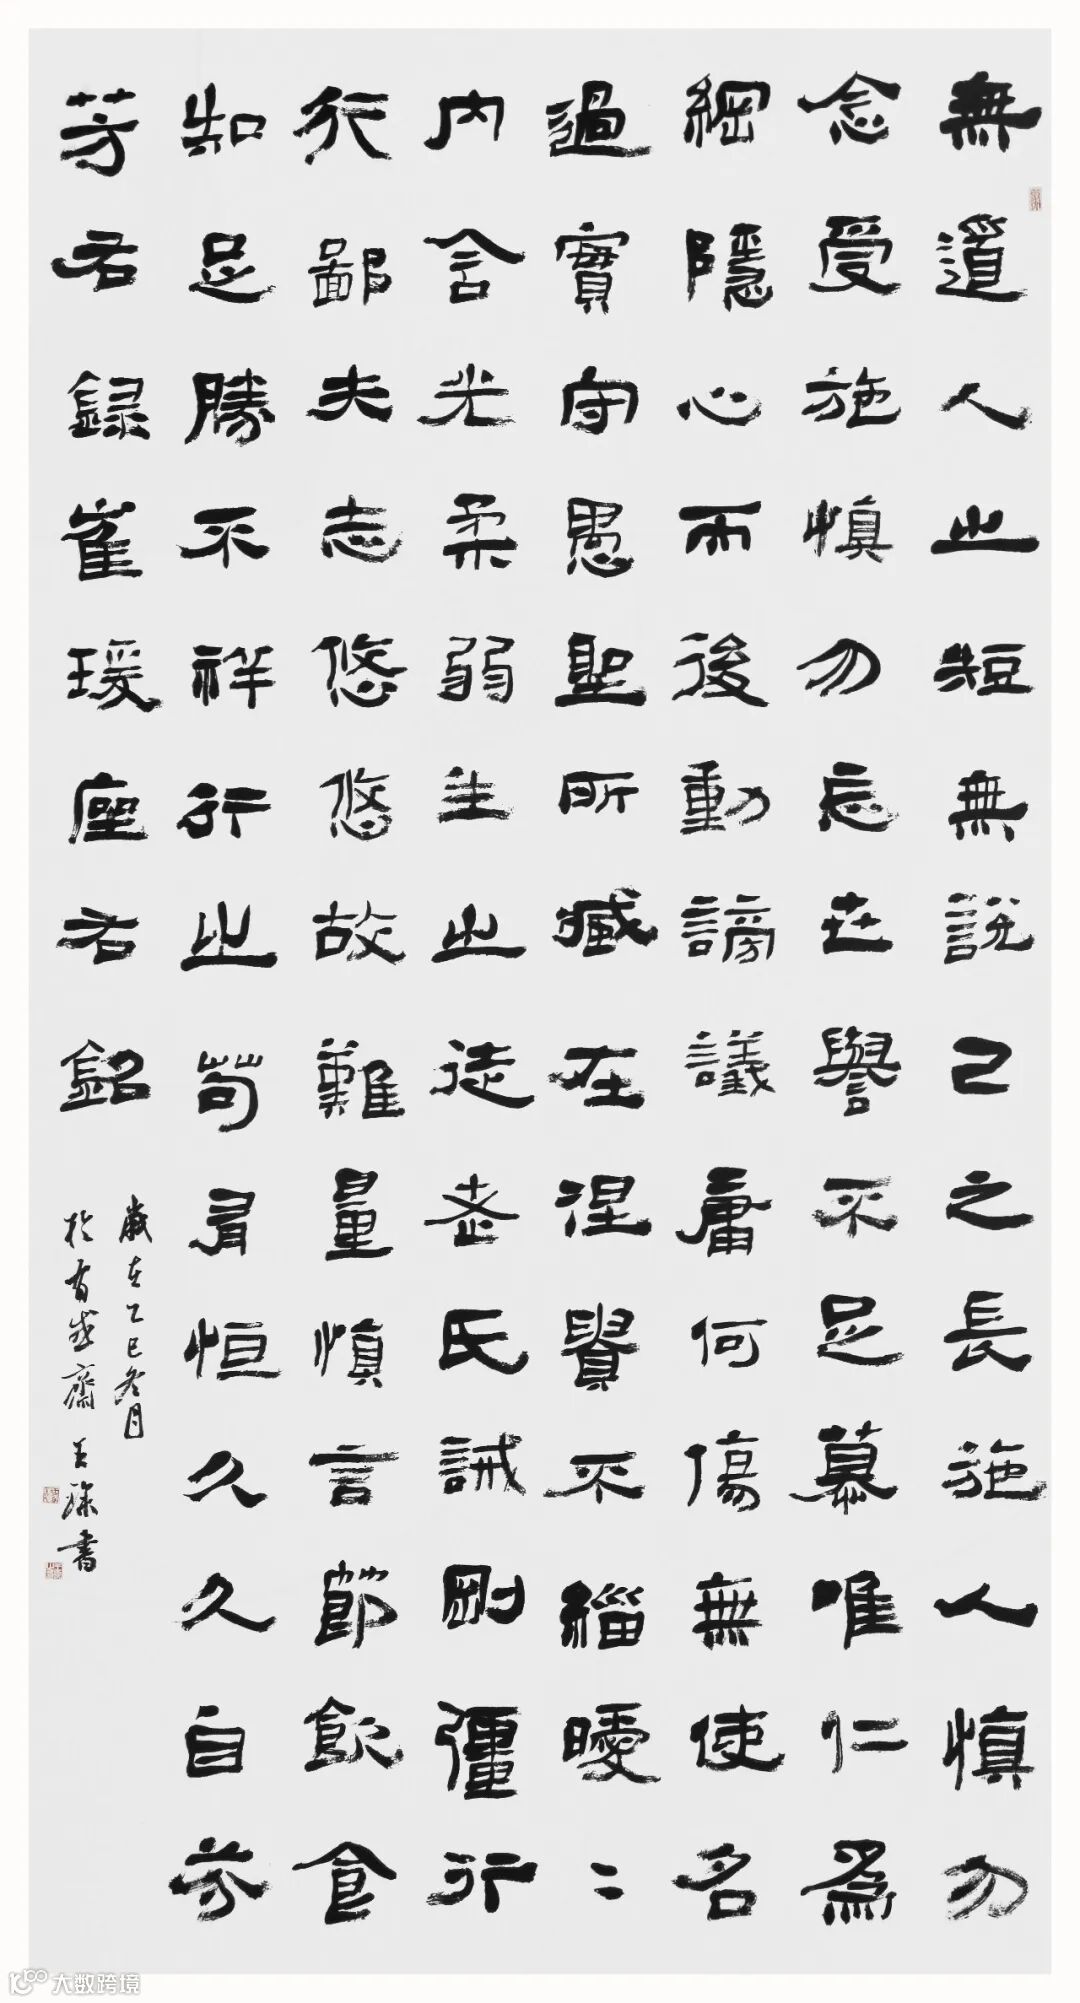 無道人之短無說己之長施人慎勿
念受施慎勿忘世譽不足慕唯仁爲
綱隱心而後動謗議庸何傷無使名
過實守愚聖所臧在涅貴不緇曖〻
內含光柔弱生之徒老氏誡剛彊行
行鄙夫志悠悠故難量慎言節飲食
知足勝不祥行之苟有恒久久自芬
芳右録崔瑗座右銘
歲在乙巳冬月
於有感齋 王書
大数跨境